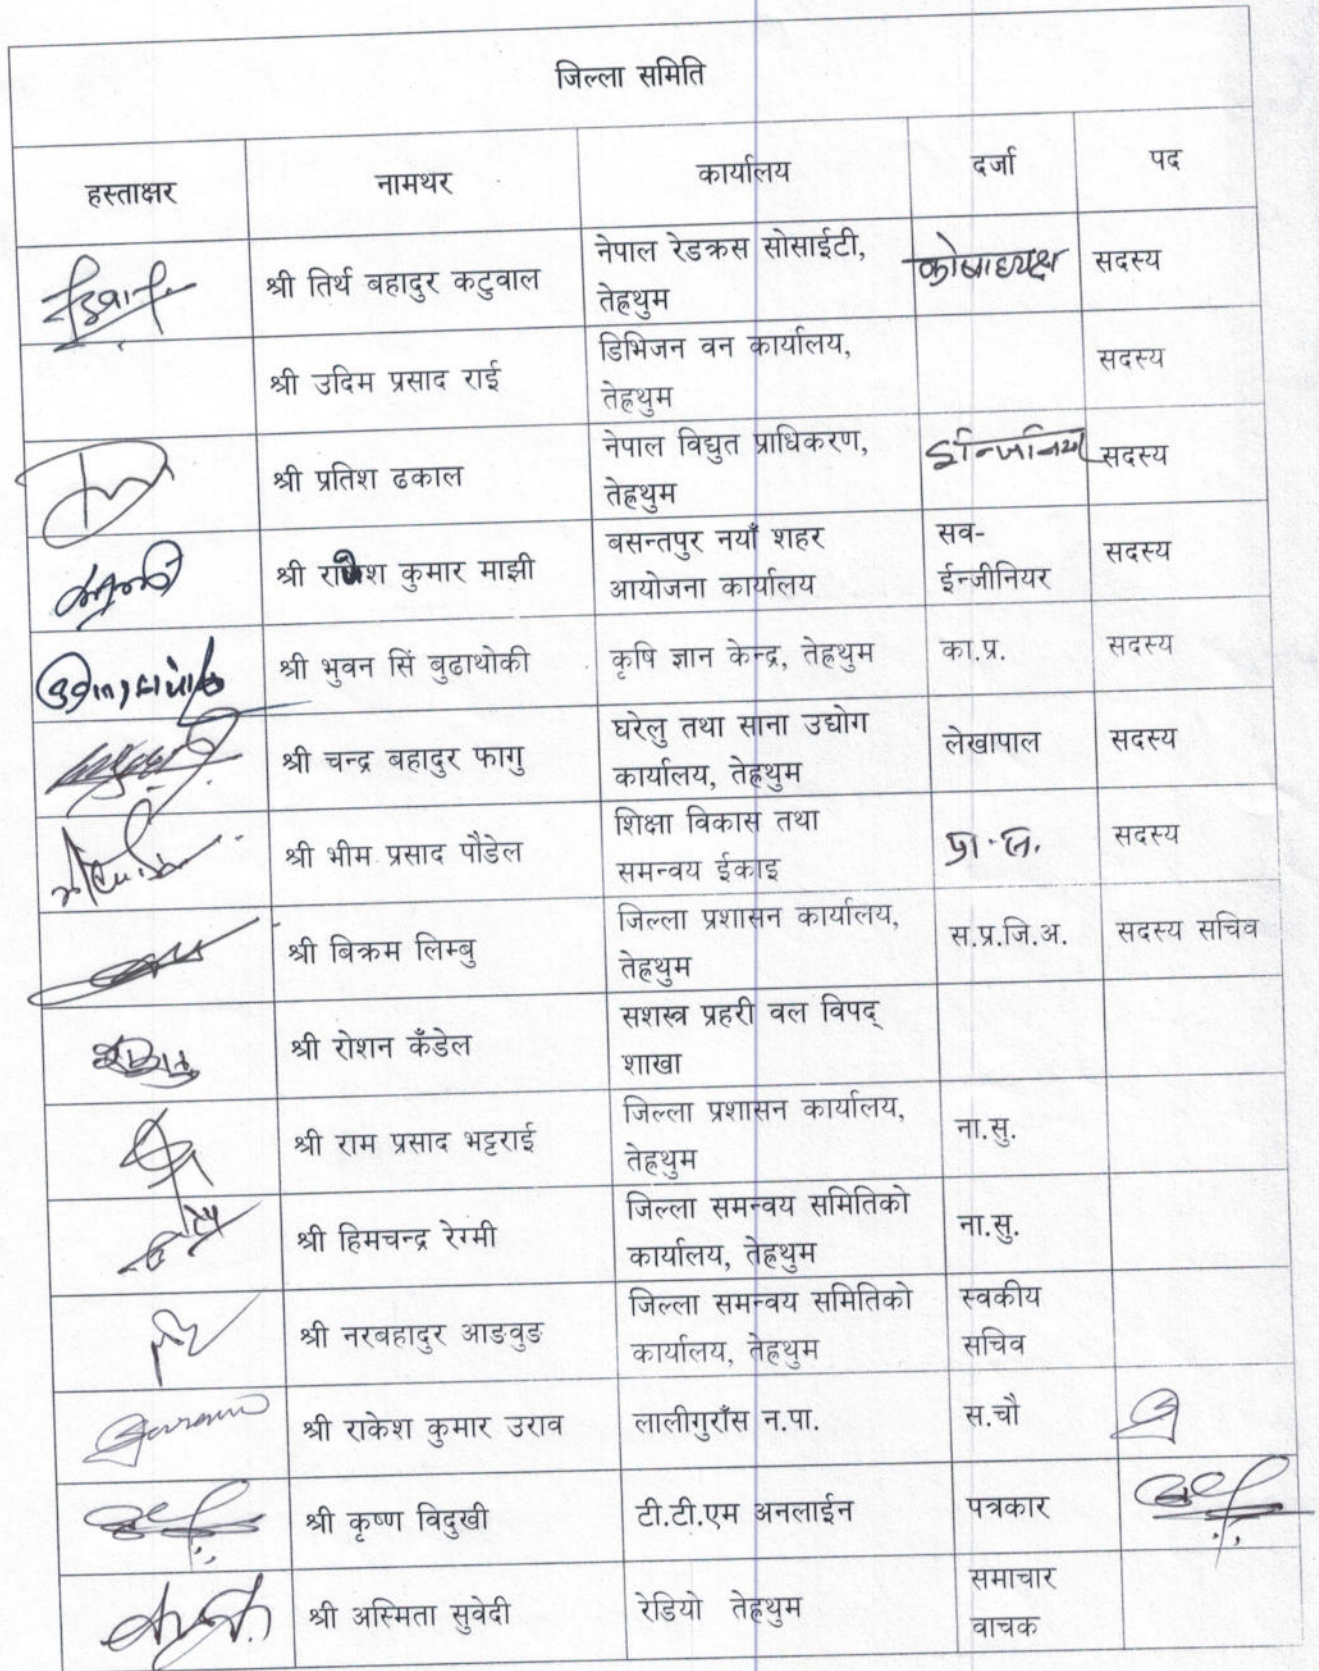 जिल्ला समिति
हस्ताक्षर नामथर कार्यालय दर्जा पद
श्री तिर्थ बहादुर कटुवाल नेपाल रेडक्रस सोसाईटी, कोषाध्यक्ष सदस्य
तेह्रथुम
श्री उदिम प्रसाद राई डिभिजन वन कार्यालय, सदस्य
तेह्रथुम
श्री प्रतिश ढकाल नेपाल विद्युत प्राधिकरण, सदस्य
तेह्रथुम
श्री कुमार माझी बसन्तपुर नयाँ शहर सव- सदस्य
आयोजना कार्यालय ईन्जीनियर
श्री भुवन सिं बुढाथोकी कृषि ज्ञान केन्द्र, तेह्रथुम का.प्र. सदस्य
श्री चन्द्र बहादुर फागु घरेलु तथा साना उद्योग लेखापाल सदस्य
कार्यालय, तेह्रथुम
श्री भीम प्रसाद पौडेल शिक्षा विकास तथा सदस्य
समन्वय ईकाइ
श्री बिक्रम लिम्बु जिल्ला प्रशासन कार्यालय, स.प्र.जि.अ. सदस्य सचिव
तेह्रथुम
श्री रोशन कँडेल सशस्त्र प्रहरी वल विपद्
शाखा
श्री राम प्रसाद भट्टराई जिल्ला प्रशासन कार्यालय, ना.सु.
तेह्रथुम
श्री हिमचन्द्र रेग्मी जिल्ला समन्वय समितिको ना.सु.
कार्यालय, तेह्रथुम
श्री नरबहादुर आङवुङ जिल्ला समन्वय समितिको स्वकीय
कार्यालय, तेह्रथुम सचिव
श्री राकेश कुमार उराव लालीगुराँस न.पा. स.चौ
श्री कृष्ण विदुखी टी.टी.एम अनलाईन पत्रकार
श्री अस्मिता सुवेदी रेडियो तेह्रथुम समाचार
वाचक